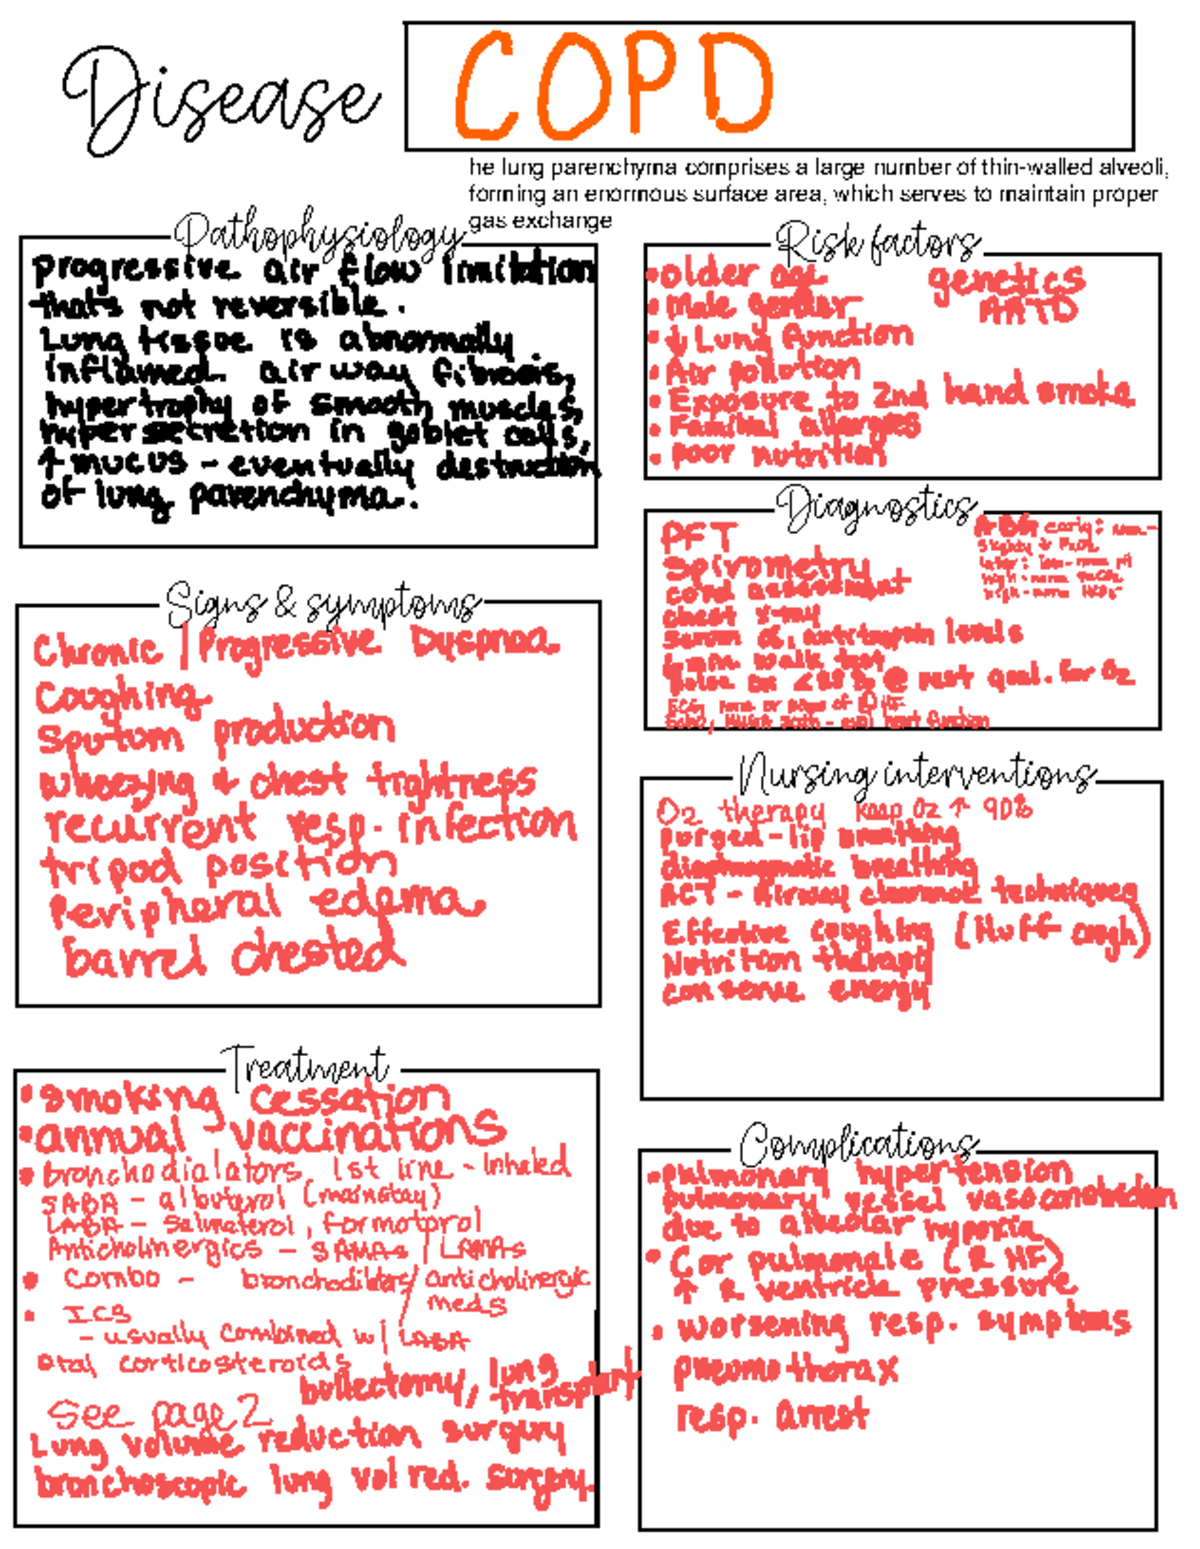 Disease
COPD
he lung parenchyma comprises a large number of thin-walled alveoli,
forming an enormous surface area, which serves to maintain proper
gas exchange
Pathophysiology
progressive air flow limitation
thats not reversible.
Lung tissue is abnormally
inflamed. air way fibrosis,
hypertrophy of smooth muscles,
hypersecretion in goblet cells,
↑ mucus - eventually destruction
of lung parenchyma.
Signs & symptoms
Chronic / Progressive Dyspnea
Coughing
Sputum production
wheezing & chest tightness
recurrent resp. infection
tripod position
Peripheral edema
barrel chested
Treatment
• smoking cessation
• annual vaccinations
• bronchodialators 1st line - Inhaled
SABA - albuterol (mainstay)
LABA - Salmeterol, formoterol
Anticholinergics - SAMAs / LAMAs
• Combo - bronchodilators/anticholinergic
meds
• ICS
- usually combined w/ LABA
oral corticosteroids
bullectomy, lung
transplant
see page 2
Lung volume reduction surgery
bronchoscopic lung vol red. surgery.
Risk factors
• older age
genetics
AATD
• Male gender
• ↓ Lung function
• Air pollution
• Exposure to 2nd hand smoke
• Familial allergies
• poor nutrition
Diagnostics
PFT
Spirometry
COPD assessment
chest x-ray
serum α1 antitrypsin levels
6 min walk test
Pulse ox <88% @ rest qual. for O2
ECG
ABG early:
slightly ↓ PaO2
later: low-norm pH
high-norm PaCO2
high-norm HCO3
Nursing interventions
O2 therapy keep O2 ↑ 90%
pursed-lip breathing
diaphragmatic breathing
ACT - Airway clearance techniques
Effective coughing (Huff cough)
Nutrition therapy
conserve energy
Complications
• pulmonary hypertension
pulmonary vessel vasoconstriction
due to alveolar hypoxia
• Cor pulmonale (R HF)
↑ R ventricle pressure
• worsening resp. symptoms
pneumothorax
resp. arrest